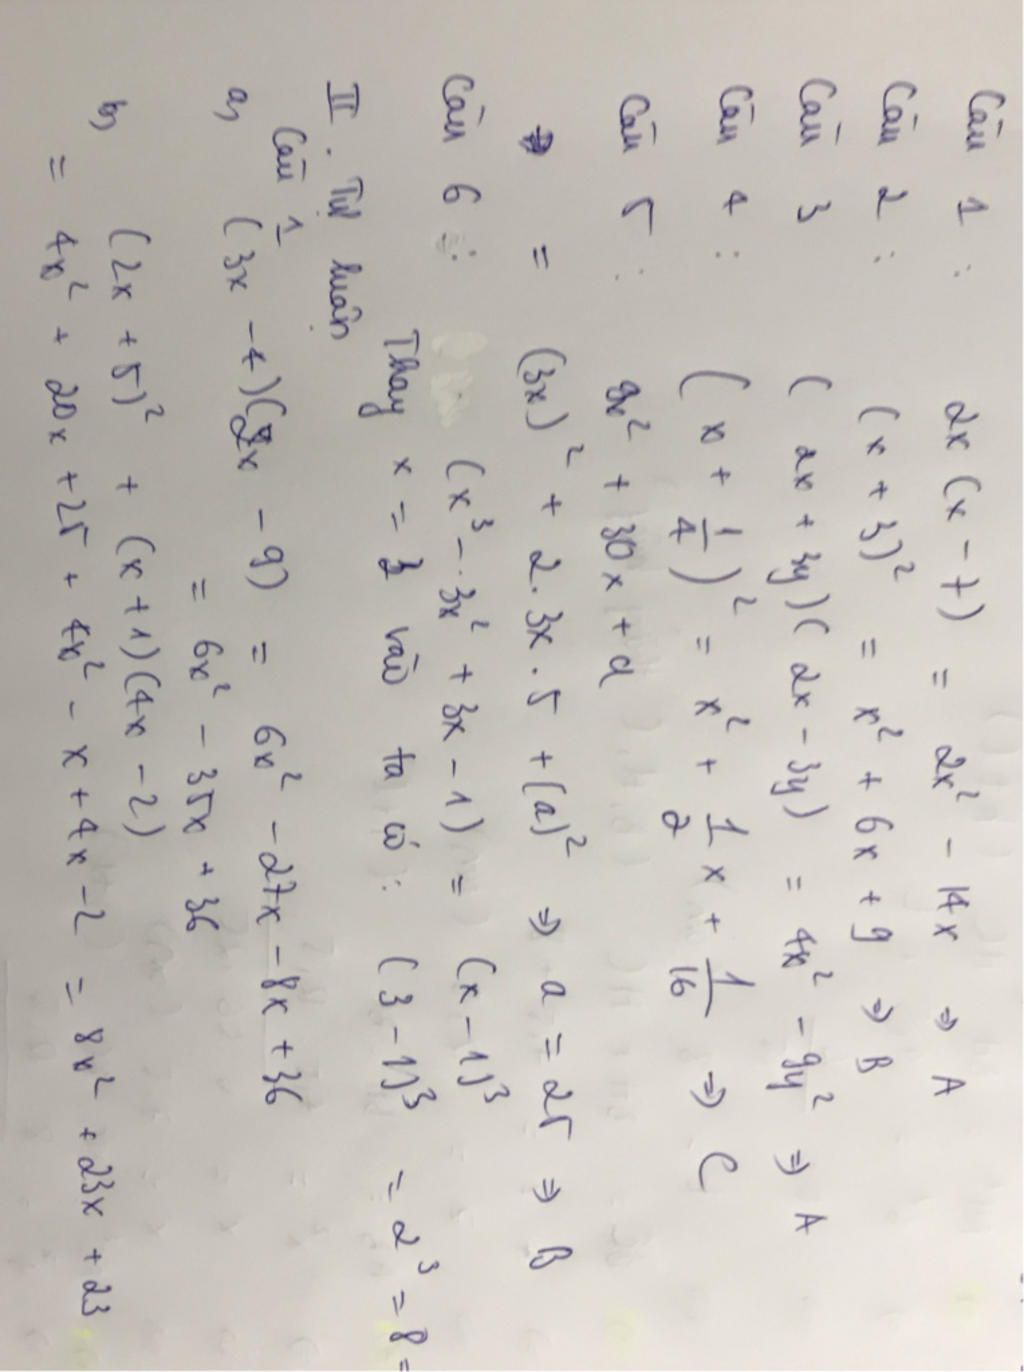 Câu 1 : 2x (x - 7) = 2x² - 14x ⇒ A
Câu 2 : (x + 3)² = x² + 6x + 9 ⇒ B
Câu 3 ( 2x + 3y)( 2x - 3y) = 4x² - 9y² ⇒ A
Câu 4 : ( x + 1/4 )² = x² + 1/2 x + 1/16 ⇒ C
Câu 5 : 9x² + 30x + a
⇒ = (3x)² + 2.3x.5 + (a)² ⇒ a = 25 ⇒ B
Câu 6 : (x³ - 3x² + 3x - 1) = (x - 1)³
Thay x = 3 vào ta có : (3 - 1)³ = 2³ = 8 =
II. Tự luận
Câu 1
a, (3x - 4)(2x - 9) = 6x² - 27x - 8x + 36
= 6x² - 35x + 36
b, (2x + 5)² + (x + 1)(4x - 2)
= 4x² + 20x + 25 + 4x² - x + 4x - 2 = 8x² + 23x + 23